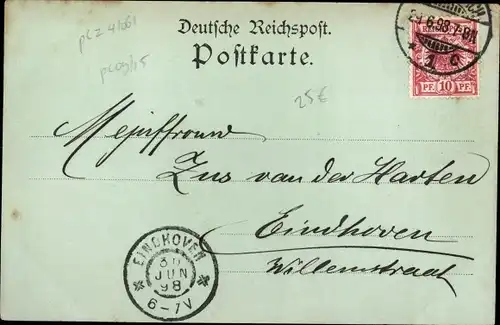 pcZ 41061
pc09/15
Deutsche Reichspost.
Postkarte.
6.98.7-8N
PF 10 PF
25€
Mejuffrouw
Zus van der Harten
Eindhoven
Willemstraat
EINDHOVEN
30
JUN
98
6-7V